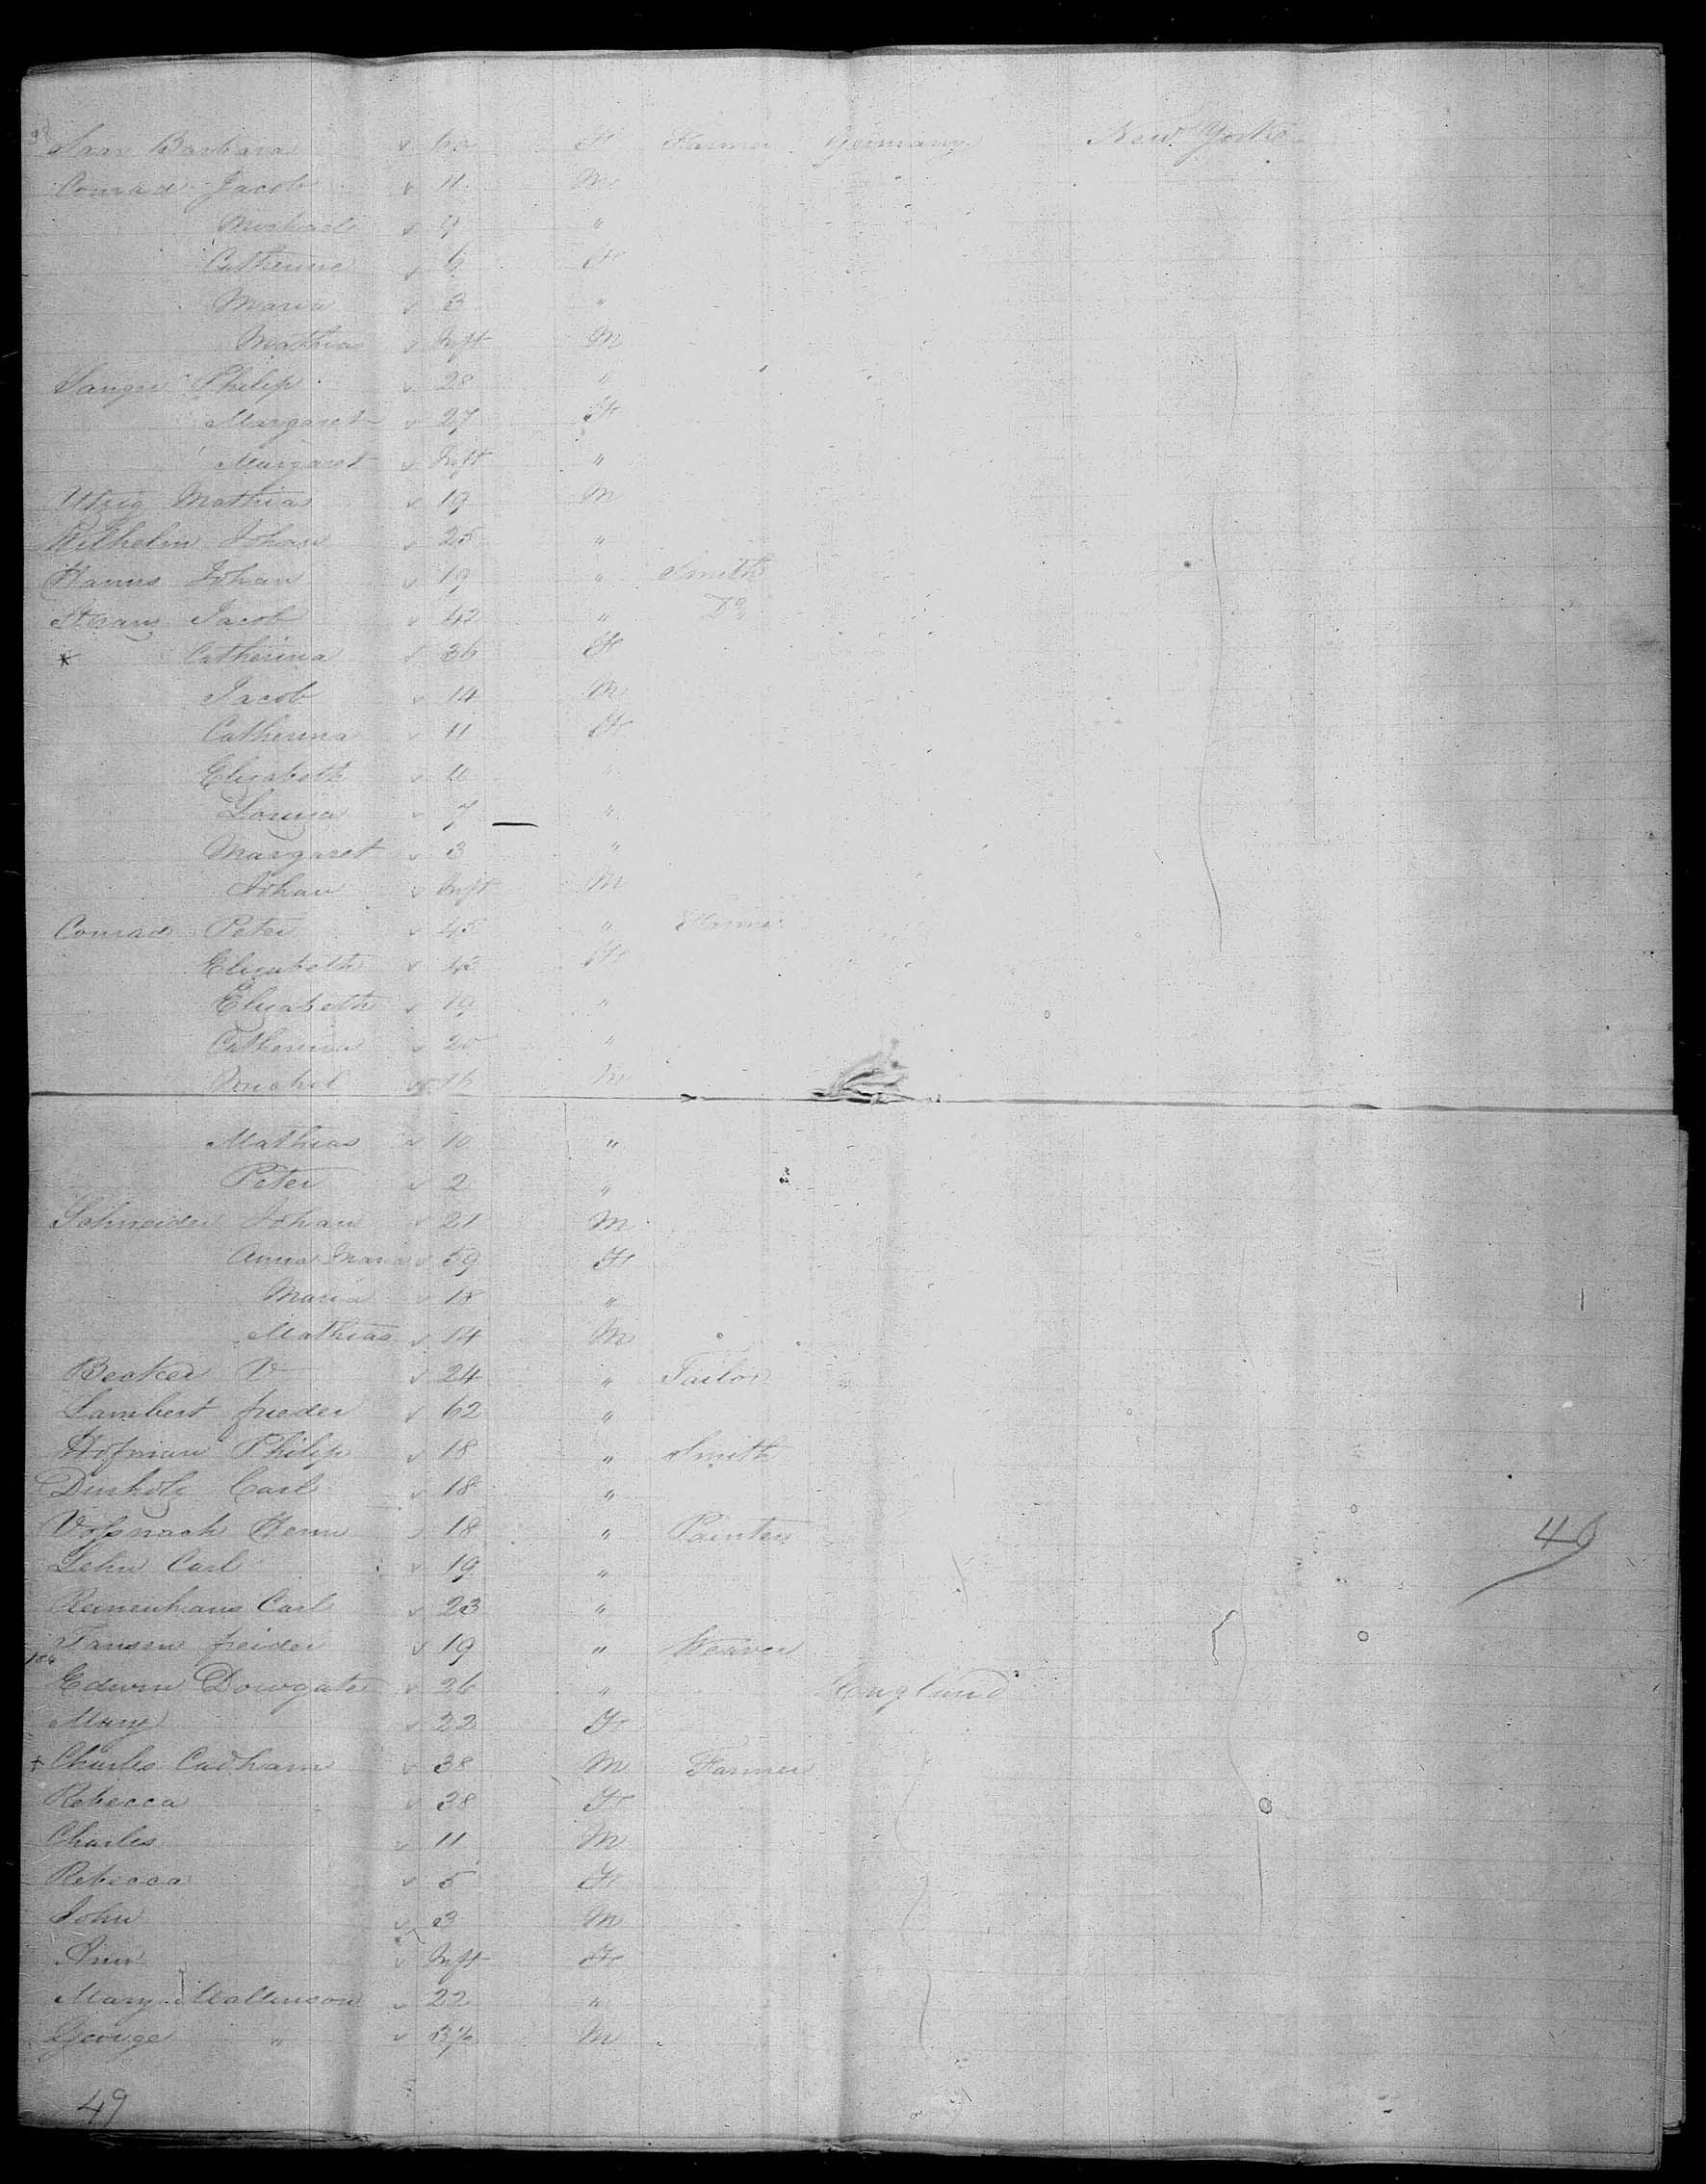 Barbara 60 F Farmer Germany New York
Conrad Jacob 11 M
Michael 9 "
Catherine 6 F
Maria 3 "
Mathias Inft M
Philip 28 "
Margaret 27 F
Margaret Inft "
Utzig Mathia 19 M
Wilhelm Johan 25 "
Johan 19 " Smith
Jacob 42 " Do
* Catherina 36 F
Jacob 14 M
Catherina 11 F
Elizabeth "
Louisa 7 "
Margaret 3 "
Johan Inft M
Conrad Peter 45 " Farmer
Elizabeth F
Elizabeth 19 "
Catherina 20 "
Michel 16 M
Mathias 10 "
Peter 2 "
Schneider Johan 21 M
Anna Maria 59 F
Maria 18 "
Mathias 14 M
Becker V 24 " Tailor
Lambert frieder 62 "
Hofman Philip 18 " Smith
Carl 18 "
18 " Painter
Lehn Carl 19 "
Carl 23 "
Jansen freider 19 " Weaver
Edwin Dowgate 26 " England
Mary 22 F
+ Charles Cadham 38 M Farmer
Rebecca 38 F
Charles 11 M
Rebecca 5 F
John 3 M
Ann Inft F
Mary Mallinson 22 "
George " M
49